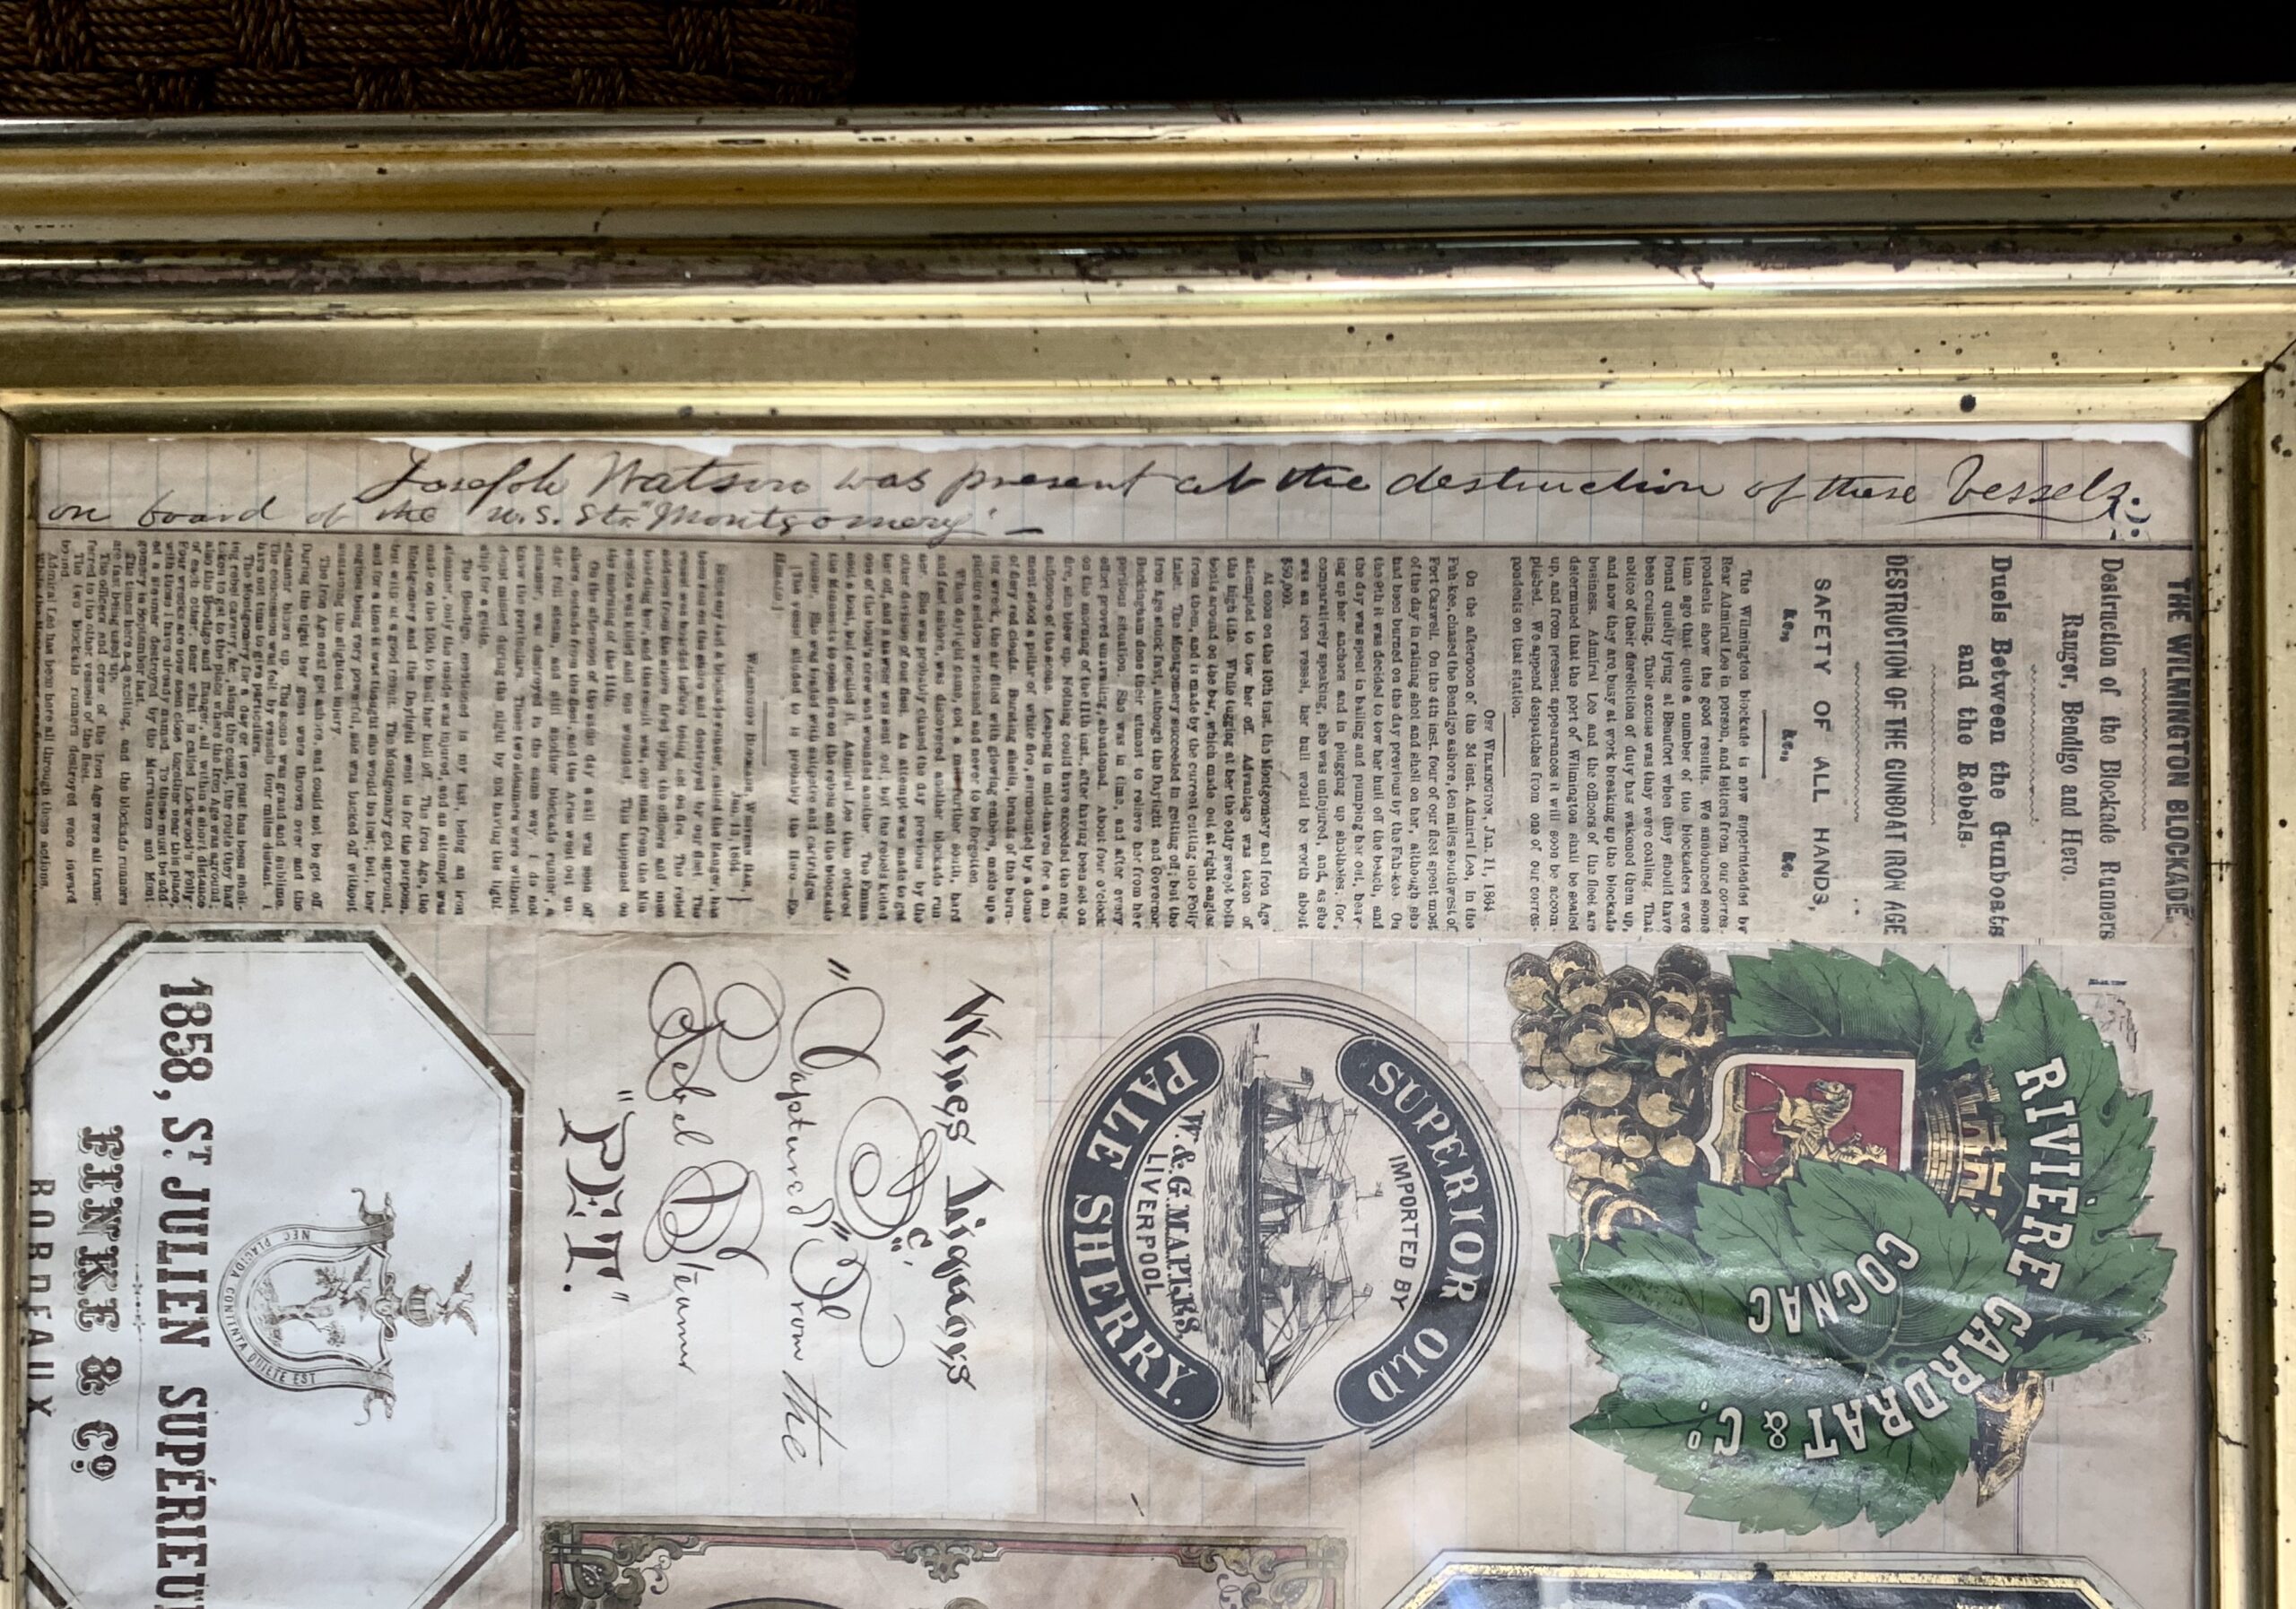 Joseph Watson was present at the destruction of these Vessels.
on board of the "U.S. Str. Montgomery" —
THE WILMINGTON BLOCKADE.
Destruction of the Blockade Runners
Ranger, Bendigo and Hero.
Duels Between the Gunboats
and the Rebels.
DESTRUCTION OF THE GUNBOAT IRON AGE
SAFETY OF ALL HANDS,
&c., &c., &c.
The Wilmington blockade is now superintended by
Rear Admiral Lee in person, and letters from our corres-
pondents show the good results. We announced some
time ago that quite a number of the blockaders were
found quietly lying at Beaufort when they should have
been cruising. Their excuse was they were coaling. That
notice of their dereliction of duty has wakened them up,
and now they are busy at work breaking up the blockade
business. Admiral Lee and the officers of the fleet are
determined that the port of Wilmington shall be sealed
up, and from present appearances it will soon be accom-
plished. We append despatches from one of our corres-
pondents on that station.
OFF WILMINGTON, Jan. 11, 1864
On the afternoon of the 3d inst. Admiral Lee, in the
Fah-kee, chased the Bendigo ashore, ten miles southwest of
Fort Caswell. On the 4th inst. four of our fleet spent most
of the day in raining shot and shell on her, although she
had been burned on the day previous by the Fah-kee. On
the 9th it was decided to tow her hull off the beach, and
the day was spent in bailing and pumping her out, heav-
ing up her anchors and in plugging up shotholes; for,
comparatively speaking, she was uninjured, and, as she
was an iron vessel, her hull would be worth about
$50,000.
At noon on the 10th inst. the Montgomery and Iron Age
attempted to tow her off. Advantage was taken of
the high tide. While tugging at her the eddy swept both
boats around on the bar, which made out at right angles
from them, and is made by the current cutting into Folly
Inlet. The Montgomery succeeded in getting off; but the
Iron Age stuck fast, although the Daylight and Governor
Buckingham done their utmost to relieve her from her
perilous situation. She was in time, and after every
effort proved unavailing, abandoned. About four o'clock
on the morning of the 11th inst., after having been set on
fire, she blew up. Nothing could have exceeded the mag-
nificence of the scene. Leaping in mid-heaven for a mo-
ment stood a pillar of white fire, surmounted by a dome
of fiery red clouds. Bursting shells, brands of the burn-
ing wreck, the air filled with glowing embers, made up a
picture seldom witnessed and never to be forgotten.
When daylight came, not a mile further south, hard
and fast ashore, was discovered another blockade run-
ner. She was probably chased the day previous by the
other division of our fleet. An attempt was made to get
her off, and a hawser was sent out; but the rebels killed
one of the boat's crew and wounded another. The Emma
sent a boat, but recalled it. Admiral Lee then ordered
the vessels to open fire on the rebels and the blockade
runner. She was loaded with saltpetre and cartridges.
[The vessel alluded to is probably the Hero—ED.
HERALD.]
Since my last a blockade runner, called the Ranger, has
been run on the shore and destroyed by our fleet. The
vessel was boarded before being set on fire. The rebel
soldiers from the shore fired upon the officers and men
boarding her, and the result was, one man from the Min
nesota was killed and one wounded. This happened on
the morning of the 11th.
On the afternoon of the same day a sail was seen off
shore, outside from the fleet, and the Aries went out un
der full steam, and still another blockade runner, a
steamer, was destroyed in the same way. I do not
know the particulars. These two steamers were without
doubt missed during the night by not having the light
ship for a guide.
The Bendigo, mentioned in my last, being an iron
steamer, only the inside was injured, and an attempt was
made on the 10th to haul her hull off. The Iron Age, the
Montgomery and the Daylight went in for the purpose,
but with not a good result. The Montgomery got aground,
and for a time it was thought she would be lost; but, her
engines being very powerful, she was backed off without
sustaining the slightest injury.
The Iron Age next got ashore, and could not be got off.
During the night her guns were thrown over and the
steamer blown up. The scene was grand and sublime.
The concussion was felt by vessels four miles distant. I
have not time to give particulars.
The Montgomery for a day or two past has been shell-
ing rebel cavalry, &c., along the coast, the route they had
taken to get to the place where the Iron Age was aground;
also the Bendigo and Ranger, all within a short distance
of each other, near what is called Lockwood's Folly.
Four wrecks are now seen close together near this place,
with those I have already named. To these must be add-
ed a steamer destroyed by the Maratanza and Mont
gomery in September last.
The times here are exciting, and the blockade runners
are fast being used up.
The officers and crew of the Iron Age were all trans-
ferred to the other vessels of the fleet.
The two blockade runners destroyed were inward
bound.
Admiral Lee has been here all through these actions.
RIVIÈRE GARDRAT & Co.
COGNAC
SUPERIOR OLD
IMPORTED BY
W. & G. MALTBS.
LIVERPOOL
PALE SHERRY.
Wines Liquors
&c.
"Captured" From the
Rebel Steamer
"PET."
NEC PLACIDA CONTENTA QUIETE EST
1858, ST. JULIEN SUPÉRIEU
FINKE & Co.
BORDEAUX